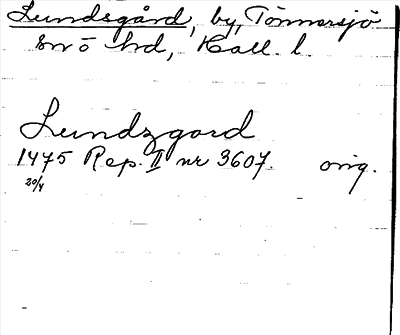 Lundsgård, by, Tönnersjö
sn o hd, Hall. l.
Lundzgard
1475 Rep. II nr 3607. orig.
20/4